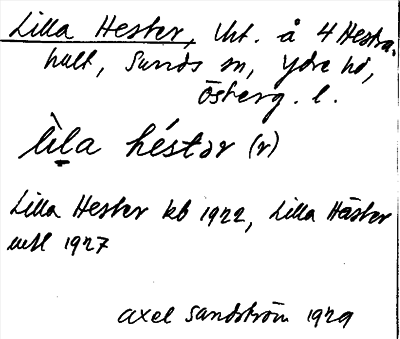 Lilla Hester, lht. å 4 Hestra-
hult, Sunds sn, Ydre hd,
Österg. l.
lìla héstər (r)
Lilla Hester kb 1922, Lilla Häster
mtl 1927
Axel Sandström 1929